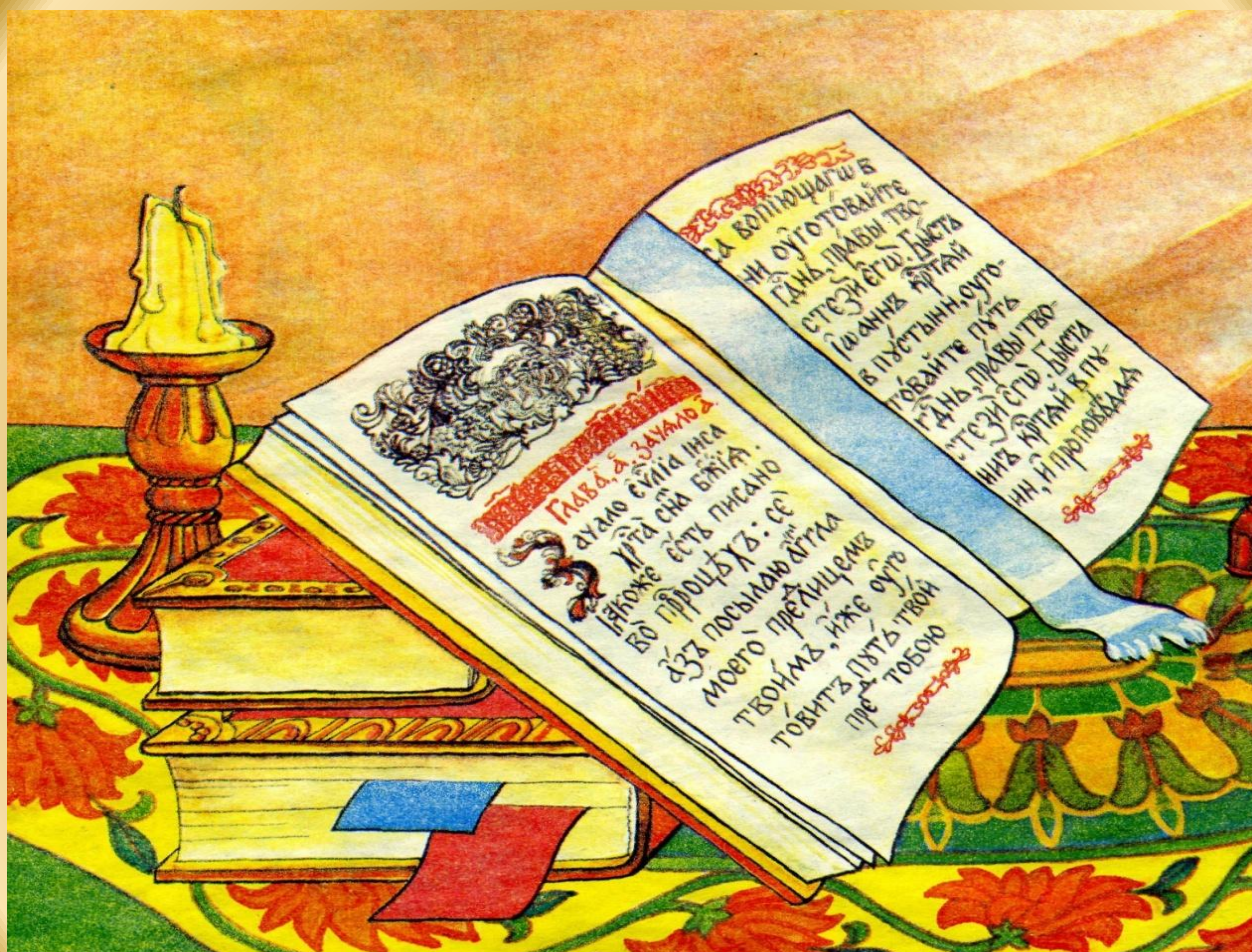 Глава̀, а҃, зачало а҃
Зачало є҆ѵⷢ҇лїа інс҃а
хрⷭ҇та̀ сн҃а бж҃їѧ
ꙗ҆́коже є҆́сть писано
во̀ прⷪ҇ро́цѣхъ: сѐ
а҆́зъ посылаю а҆́гг҃ла
моего̀ пред̾ лицемъ
твои́мъ, и҆́же оу҆го
то́витъ пꙋ́ть твой
пред̾ тобою
са вопїющагѡ в
ни оу҆гото́вайте
гдⷭ҇нь, пра́вы тво-
стєзѝ є҆гѡ̀. Бы́сть
і҆ѡа́ннъ крⷭ҇тѧ́й
в пꙋ́стыни, оуго-
то́вайте пꙋ́ть
гдⷭ҇нь, пра́вы тво-
стєзѝ є҆гѡ̀. Бы́сть
ннъ крⷭ҇тѧ́й в пꙋ-
ни, и҆ проповѣ́даѧ